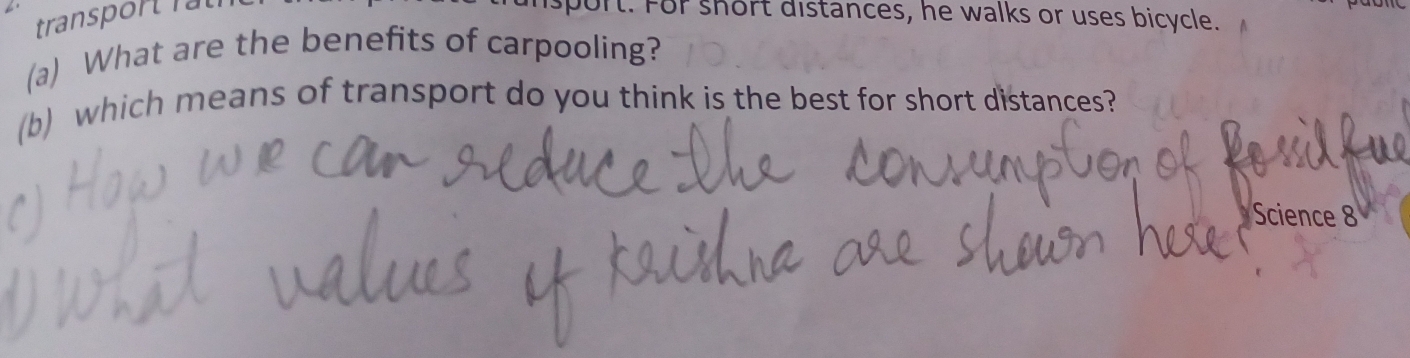 transport rather than private transport. For short distances, he walks or uses bicycle.
(a) What are the benefits of carpooling?
(b) which means of transport do you think is the best for short distances?
c) How we can reduce the consumption of fossil fuel
Science 8
d) What values of Krishna are shown here?